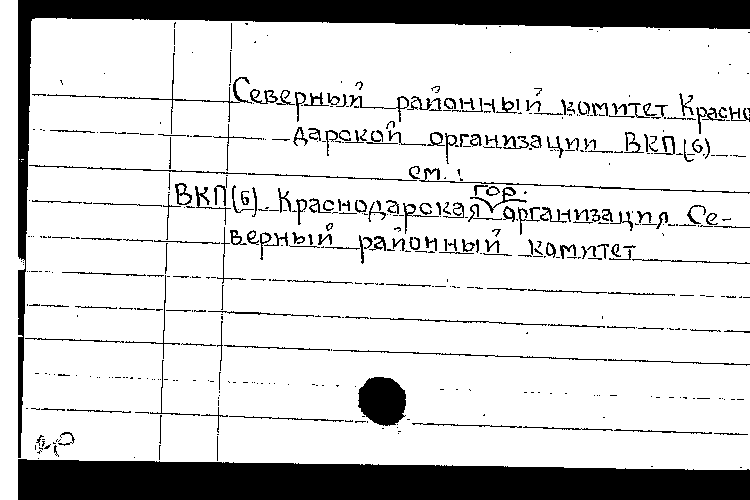 Северный районный комитет Красно
дарской организации ВКП(б)
см.:
гор.
ВКП(б). Краснодарская организация. Се-
верный районный комитет